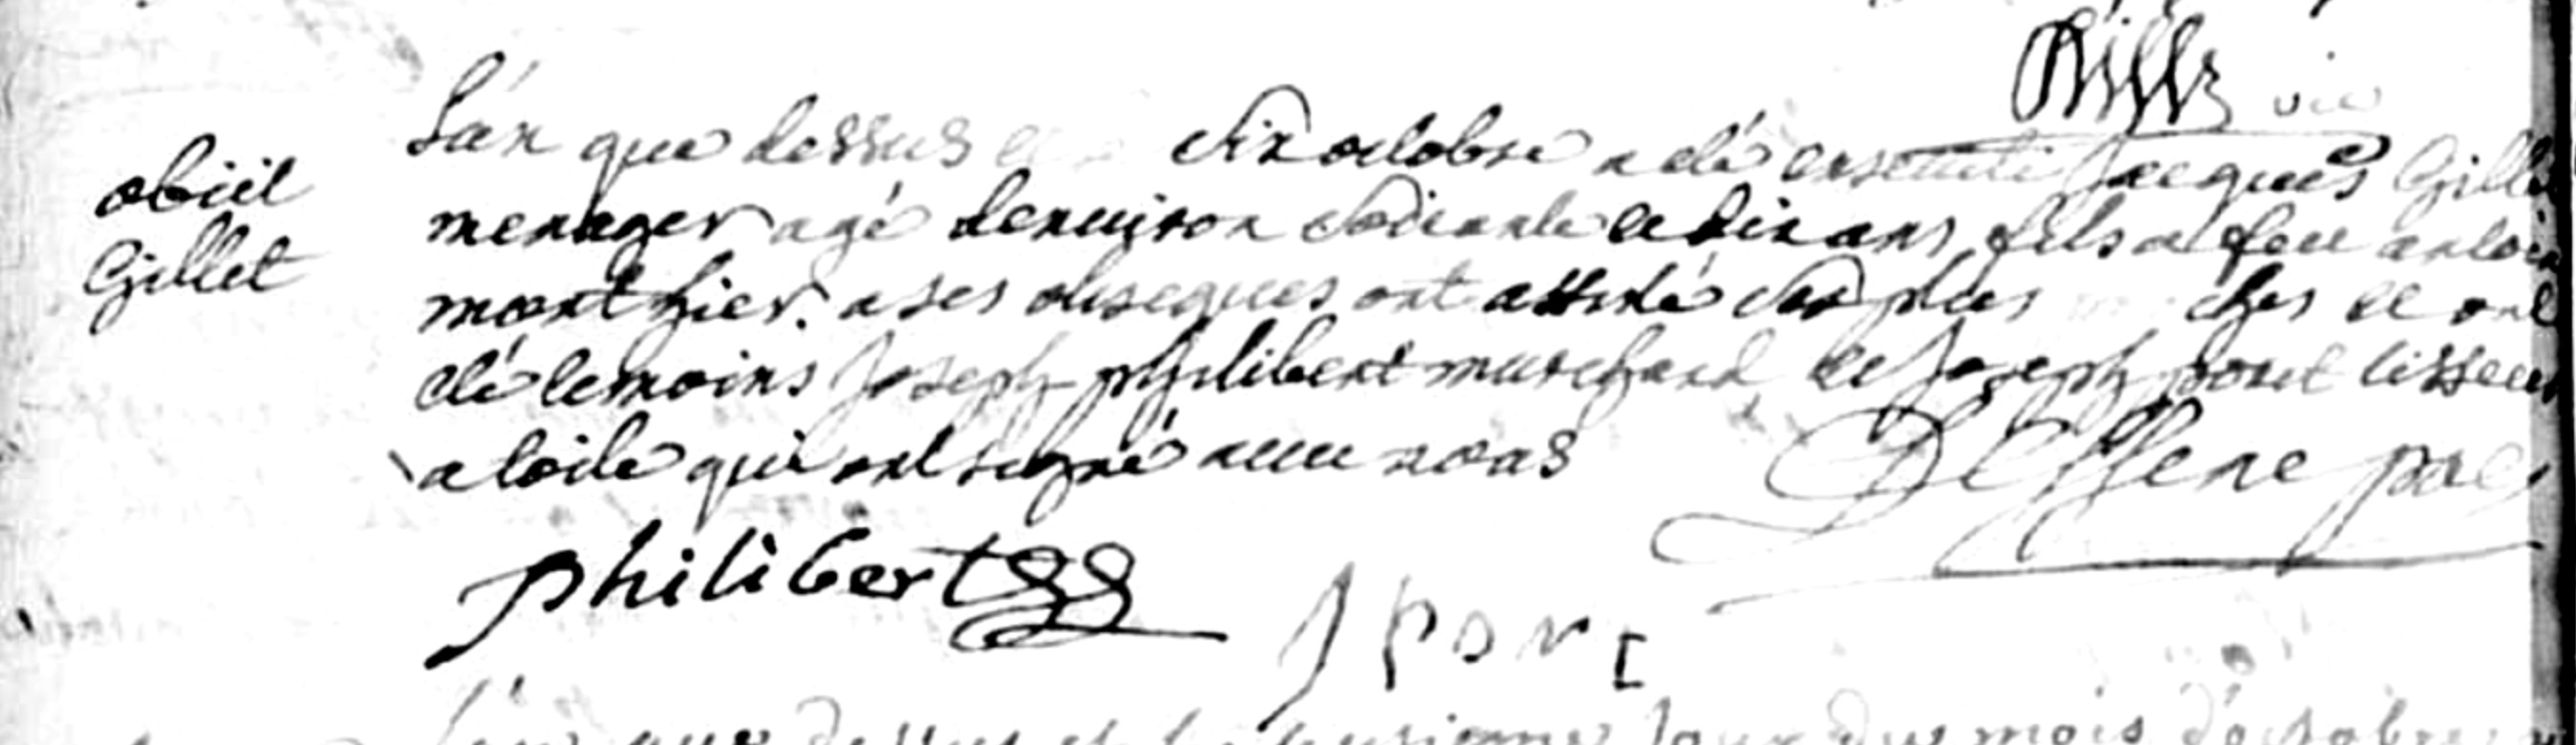 obiit
Gillet
L'an que dessus dix octobre a eté enseveli Jacques Gillet
menager agé denuiron soixante et dix ans fils a feu antoine
mort hier. a ses obseques ont assisté ses plus ches et ont
eté temoins Joseph philibert marchand et Joseph pont tisseur
a toile qui ont signé auec nous
philibert
J pont
L'an que dessus et le jour du mois d'octobre